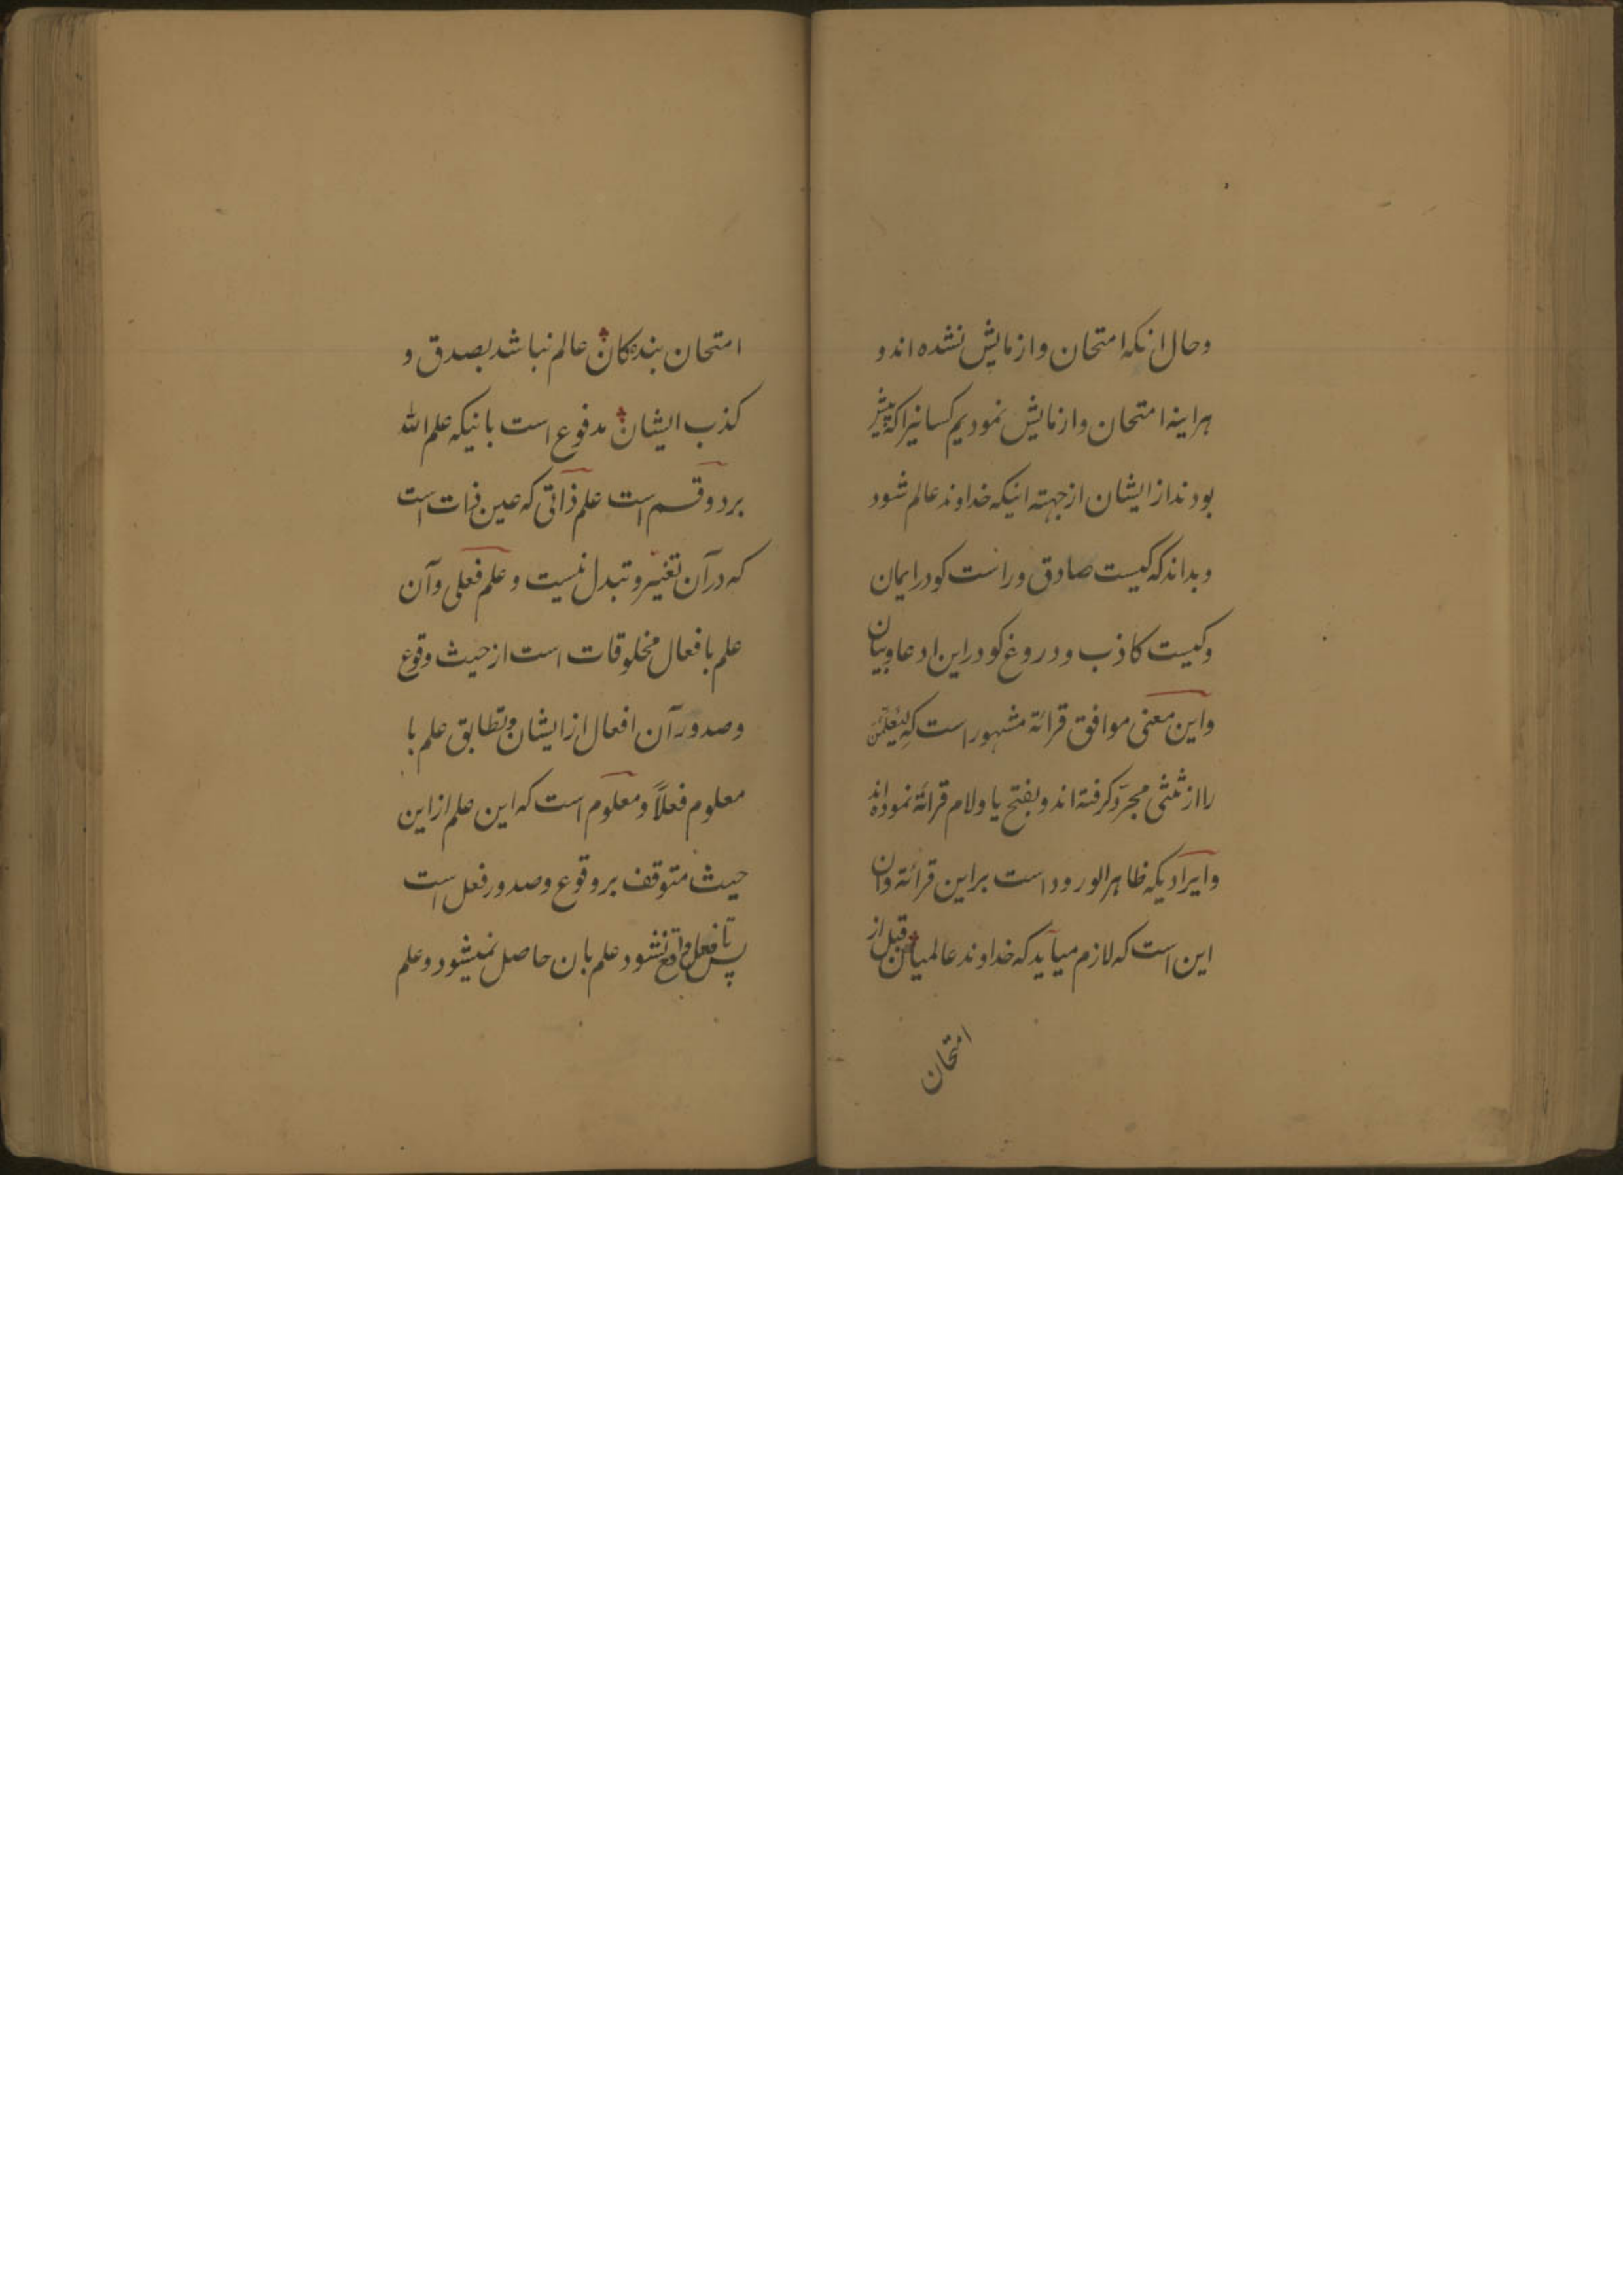 وحال انکه امتحان وازمایش نشده اند و
هراینه امتحان وازمایش نمودیم کسانیرا که پیش
بودند از ایشان از جهته اینکه خداوند عالم شود
وبداند که کیست صادق وراست کو در ایمان
وکیست کاذب ودروغ کو در این ادعا وبیان
واین معنی موافق قرائة مشهور است که لیعلمن
را از ثلثی مجرد کرفته اند وبفتح یا ولام قرائة نموده اند
وایرادیکه ظاهر الورود است براین قرائة وان
این است که لازم میآید که خداوند عالمیان قبل از
امتحان
امتحان بندکان عالم نباشد بصدق و
کذب ایشان مدفوع است بانیکه علم الله
بردو قسم است علم ذاتی که عین ذات است
که در آن تغییر وتبدل نیست وعلم فعلی وآن
علم بافعال مخلوقات است از حیث وقوع
وصدور آن افعال از ایشان وتطابق علم با
معلوم فعلاً ومعلوم است که این علم از این
حیث متوقف بروقوع وصدور فعل است
پس تا فعل واقع نشود علم بان حاصل نمیشود وعلم